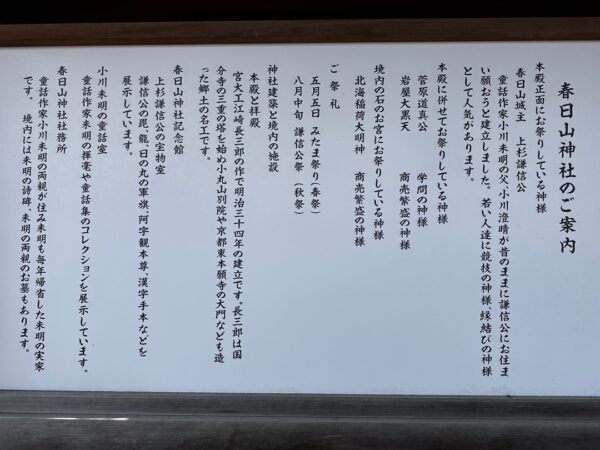 春日山神社のご案内
本殿正面にお祭りしている神様
春日山城主　上杉謙信公
童話作家小川未明の父、小川澄晴が昔のままに謙信公にお住ま
い願おうと建立しました。若い人達に競技の神様、縁結びの神様
として人気があります。
本殿に併せてお祭りしている神様
菅原道真公　学問の神様
岩屋大黒天　商売繁盛の神様
境内の石のお宮にお祭りしている神様
北海稲荷大明神　商売繁盛の神様
ご祭礼
五月五日　みたま祭り（春祭）
八月中旬　謙信公祭　（秋祭）
神社建築と境内の施設
本殿と拝殿
宮大工江崎長三郎の作で明治三十四年の建立です。長三郎は国
分寺の三重の塔を始め小丸山別院や京都東本願寺の大門なども造
った郷土の名工です。
春日山神社記念館
上杉謙信公の宝物室
謙信公の毘、龍、日の丸の軍旗、阿字観本尊、漢字手本などを
展示しています。
小川未明の童話室
童話作家未明の揮毫や童話集のコレクションを展示しています。
春日山神社社務所
童話作家小川未明の両親が住み未明も毎年帰省した未明の実家
です。　境内には未明の詩碑、未明の両親のお墓もあります。